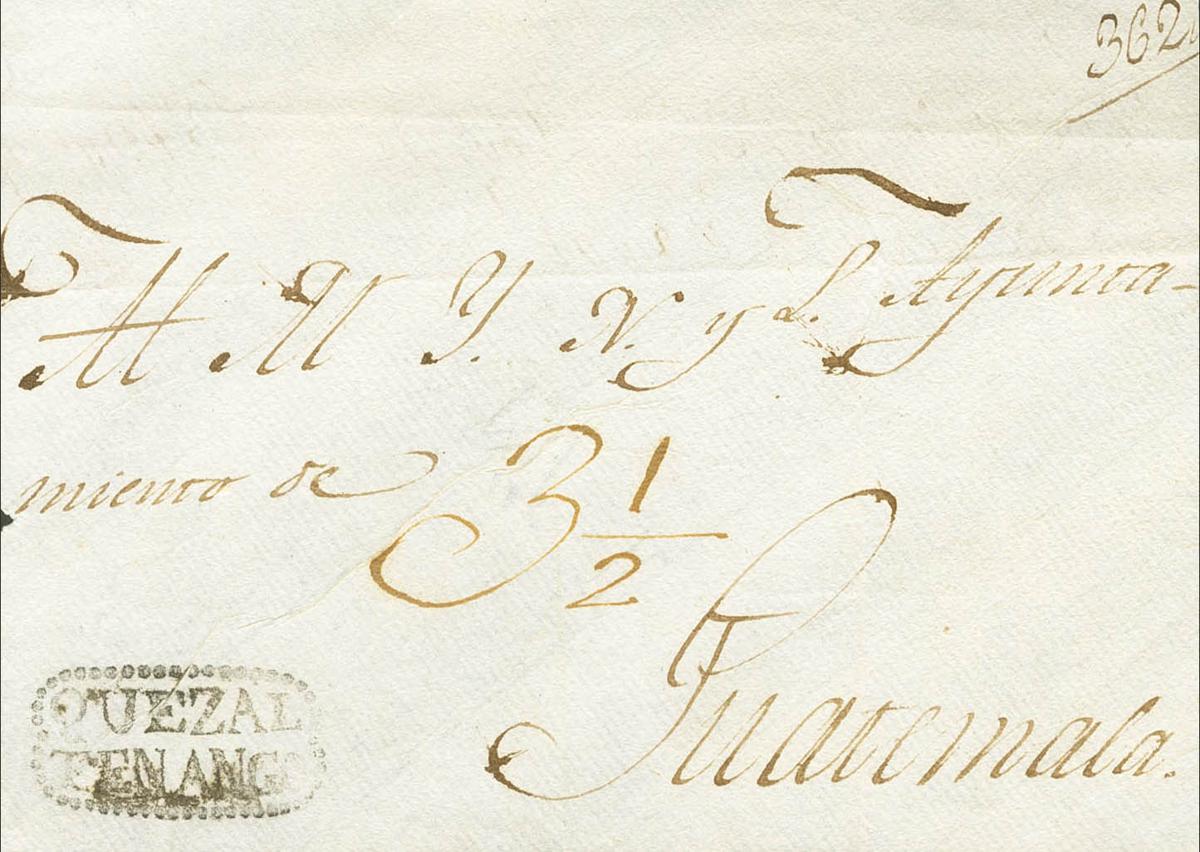 362
Al M. Y. N. y L. Ayunta-
miento de
3 1/2
Guatemala.
QUEZAL
TENANGO